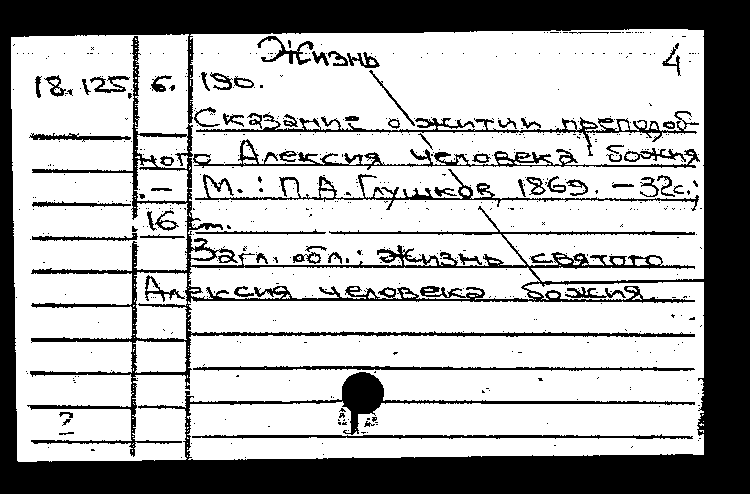 Жизнь 4
18.125. 6. 190.
Сказание о житии преподоб-
ного Алексия человека божия
.– М.: П.А. Глушков, 1869. – 32с.;
16 см.
Загл. обл.: Жизнь святого
Алексия человека божия
?